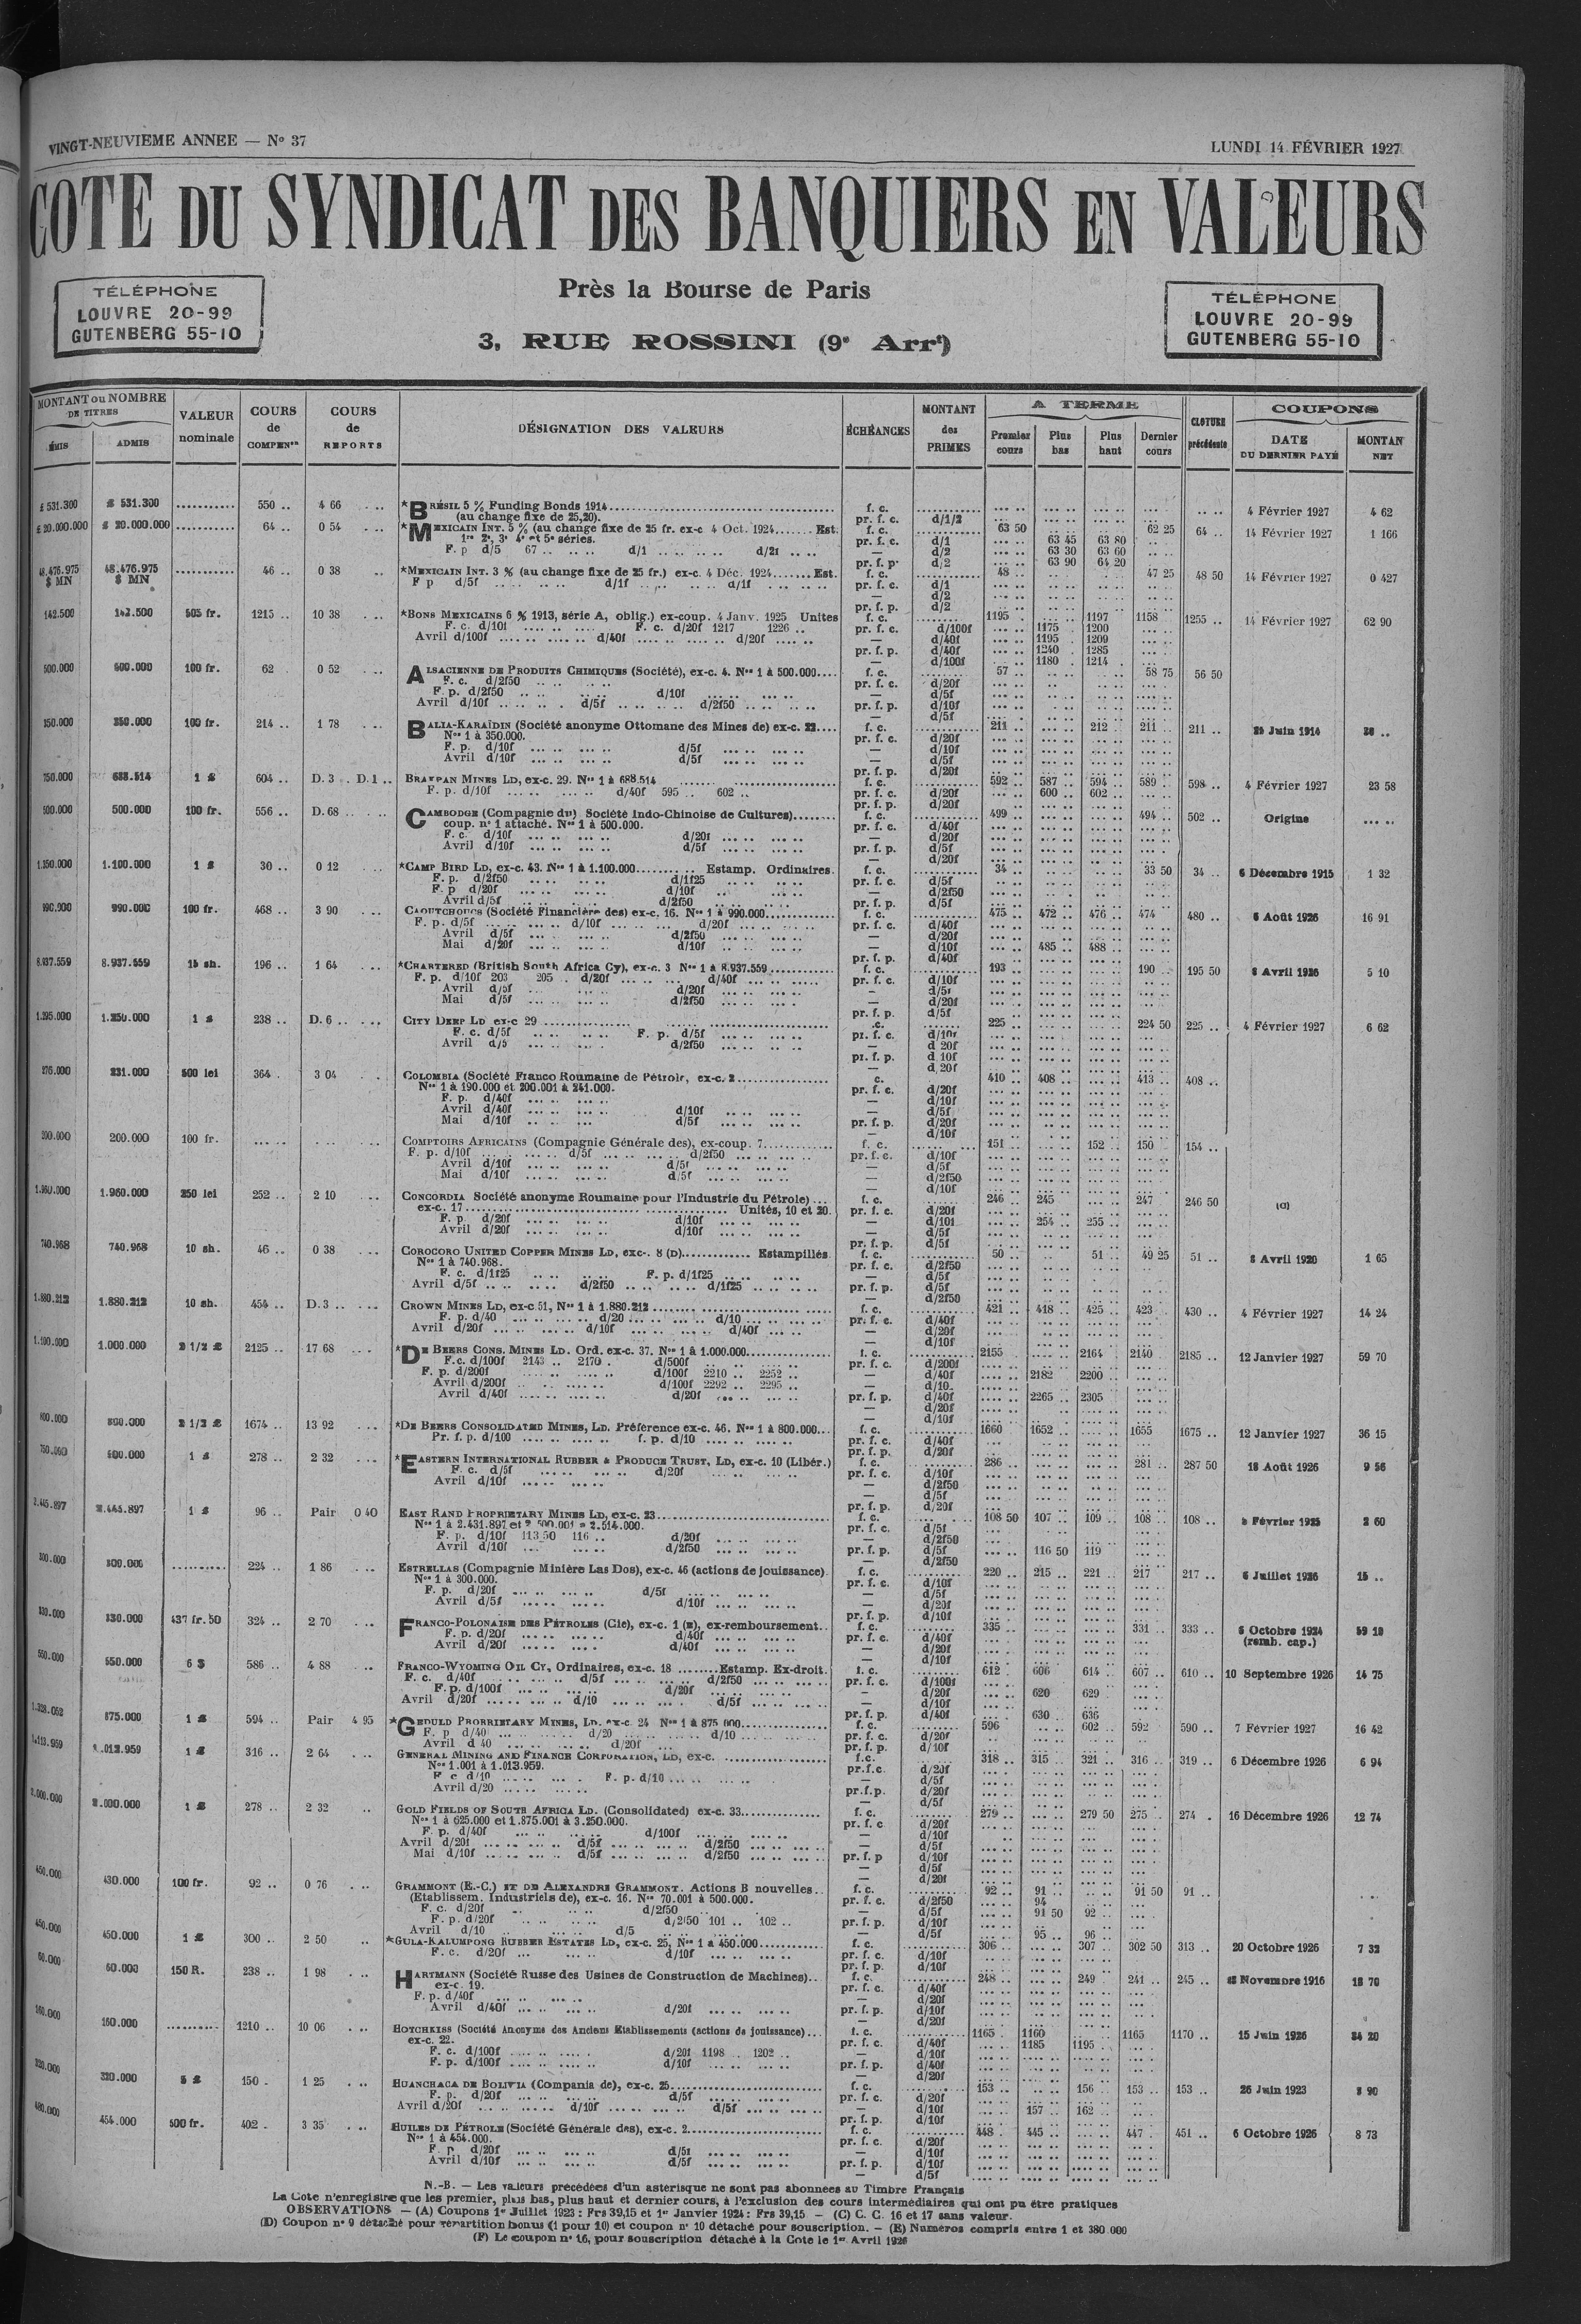 VINGT-NEUVIEME ANNEE — N° 37
LUNDI 14 FÉVRIER 1927
COTE DU SYNDICAT DES BANQUIERS EN VALEURS
TÉLÉPHONE
LOUVRE 20-99
GUTENBERG 55-10
Près la Bourse de Paris
3, RUE ROSSINI (9e Arrt)
TÉLÉPHONE
LOUVRE 20-99
GUTENBERG 55-10
MONTANT ou NOMBRE DE TITRES
ÉMIS ADMIS
VALEUR nominale
COURS de COMPENon
COURS de REPORTS
DÉSIGNATION DES VALEURS
ÉCHÉANCES
MONTANT des PRIMES
A TERME
Premier cours Plus bas Plus haut Dernier cours
CLOTURE précédente
COUPONS
DATE DU DERNIER PAYÉ MONTAN NET
£ 531.300 £ 531.300 ........... 550 .. 4 66 . .. *BRÉSIL 5 % Funding Bonds 1914 f. c. 4 Février 1927 4 62
(au change fixe de 25,20). pr. f. c. d/1/2
£ 20.000.000 £ 20.000.000 ........... 64 .. 0 54 . .. *MEXICAIN INT. 5 % (au change fixe de 25 fr. ex-c 4 Oct. 1924....... Est. f. c. 63 50 62 25 64 .. 14 Février 1927 1 166
1re 2e, 3e 4e et 5e séries. pr. f. c. d/1 63 45 63 80
F. p d/5 67 .. .. .. d/1 .. .. .. .. d/21 .. .. — d/2 63 30 63 60
pr. f. p. d/2 63 90 64 20
48.476.975 $ MN 48.476.975 $ MN ........... 46 .. 0 38 .. *MEXICAIN INT. 3 % (au change fixe de 25 fr.) ex-c. 4 Déc. 1924....... Est. f. c. 48 .. 47 25 48 50 14 Février 1927 0 427
F p d/5f d/1f d/1f pr. f. c. d/1
— d/2
pr. f. p. d/2
142.500 142.500 505 fr. 1215 .. 10 38 . .. *BONS MEXICAINS 6 % 1913, série A, oblig.) ex-coup. 4 Janv. 1925 Unites f. c. 1195 . 1197 1158 . 1255 .. 14 Février 1927 62 90
F. c. d/10f F. c. d/20f 1217 1226 .. pr. f. c. d/100f 1175 1200
Avril d/100f d/40f d/20f — d/40f 1195 1209
pr. f. p. d/40f 1240 1285
— d/100f 1180 1214
500.000 600.000 100 fr. 62 . 0 52 . .. ALSACIENNE DE PRODUITS CHIMIQUES (Société), ex-c. 4. Nos 1 à 500.000.... f. c. 57 .. 58 75 56 50
F. c. d/2f50 pr. f. c. d/20f
F. p. d/2f50 d/10f — d/5f
Avril d/10f d/5f d/2f50 pr. f. p. d/10f
— d/5f
350.000 350.000 100 fr. 214 .. 1 78 . .. BALIA-KARAÏDIN (Société anonyme Ottomane des Mines de) ex-c. 22.... f. c. 211 .. 212 .. 211 .. 211 .. 25 Juin 1914
Nos 1 à 350.000. pr. f. c. d/20f
F. p. d/10f d/5f — d/10f
Avril d/10f d/5f — d/5f
pr. f. p. d/20f
750.000 688.514 1 £ 604 .. D. 3 .. D.1 .. BRAKPAN MINES LD, ex-c. 29. Nos 1 à 688.514 f. c. 592 .. 587 .. 594 .. 589 .. 598 .. 4 Février 1927 23 58
F. p. d/10f d/40f 595 .. 602 .. pr. f. c. d/20f 600 .. 602 ..
pr. f. p. d/20f
500.000 500.000 100 fr. 556 .. D. 68 .. CAMBODGE (Compagnie du) Société Indo-Chinoise de Cultures)........ f. c. 499 .. 494 .. 502 .. Origine
coup. n° 1 attaché. Nos 1 à 500.000. pr. f. c. d/40f
F. c. d/10f d/20f — d/20f
Avril d/10f d/5f pr. f. p. d/5f
— d/20f
1.350.000 1.100.000 1 £ 30 .. 0 12 . .. *CAMP BIRD LD, ex-c. 43. Nos 1 à 1.100.000.......... Estamp. Ordinaires. f. c. 34 .. 33 50 34 .. 6 Décembre 1915 1 32
F. p. d/2f50 d/1f25 pr. f. c. d/5f
F. p d/20f d/10f — d/2f50
Avril d/5f d/2f50 pr. f. p. d/5f
990.000 990.000 100 fr. 468 .. 3 90 . .. CAOUTCHOUCS (Société Financière des) ex-c. 16. Nos 1 à 990.000............ f. c. 475 .. 472 .. 476 .. 474 .. 480 .. 6 Août 1926 16 91
F. p. d/5f d/10f d/20f pr. f. c. d/40f
Avril d/5f d/2f50 — d/20f
Mai d/20f d/10f — d/10f 485 .. 488 ..
pr. f. p. d/40f
8.937.559 8.937.559 15 sh. 196 .. 1 64 . .. *CHARTERED (British South Africa Cy), ex-c. 3 Nos 1 à 8.937.559 f. c. 193 .. 190 .. 195 50 8 Avril 1926 5 10
F. p. d/10f 203 205 . d/20f d/40f pr. f. c. d/10f
Avril d/5f d/20f — d/5f
Mai d/5f d/2f50 — d/20f
pr. f. p. d/5f
1.295.000 1.250.000 1 £ 238 .. D. 6 .. CITY DEEP LD ex-c 29 225 .. 224 50 225 .. 4 Février 1927 6 62
F. c. d/5f F. p. d/5f pr. f. c. d/10f
Avril d/5 d/2f50 — d 20f
pr. f. p. d 10f
— d 20f
276.000 231.000 500 lei 364 . 3 04 COLOMBIA (Société Franco Roumaine de Pétrole, ex-c. 2 410 .. 408 .. 413 .. 408 ..
Nos 1 à 190.000 et 200.001 à 241.000. pr. f. c. d/20f
F. p. d/40f — d/10f
Avril d/40f d/10f — d/5f
Mai d/10f d/5f pr. f. p. d/20f
— d/10f
200.000 200.000 100 fr. COMPTOIRS AFRICAINS (Compagnie Générale des), ex-coup. 7............ f. c. 151 .. 152 .. 150 .. 154 ..
F. p. d/10f d/5f d/2f50 pr. f. c. d/10f
Avril d/10f d/5f — d/5f
Mai d/10f d/5f — d/2f50
— d/10f
1.960.000 1.960.000 250 lei 252 .. 2 10 .. CONCORDIA Société anonyme Roumaine pour l'Industrie du Pétrole) ... f. c. 246 .. 245 247 .. 246 50
ex-c. 17 Unités, 10 et 20. pr. f. c. d/20f
F. p. d/20f d/10f — d/10f 254 .. 255 ..
Avril d/20f d/10f — d/5f
pr. f. p. d/5f
740.968 740.968 10 sh. 46 .. 0 38 . .. COROCORO UNITED COPPER MINES LD, exc-. 8 (D)............ Estampillés f. c. 50 .. 51 .. 49 25 51 .. 8 Avril 1920 1 65
Nos 1 à 740.968. pr. f. c. d/2f50
F. c. d/1f25 F. p. d/1f25 — d/5f
Avril d/5f d/2f50 d/1f25 pr. f. p. d/5f
— d/2f50
1.880.212 1.880.212 10 sh. 454 .. D. 3 .. CROWN MINES LD, ex-c 51, Nos 1 à 1.880.212 f. c. 421 .. 418 .. 425 .. 423 .. 430 .. 4 Février 1927 14 24
F. p. d/40 d/20 d/10 pr. f. c. d/40f
Avril d/20f d/10f d/40f — d/20f
— d/10f
1.100.000 1.000.000 2 1/2 £ 2125 .. 17 68 . .. *DE BEERS CONS. MINES LD. Ord. ex-c. 37. Nos 1 à 1.000.000............... f. c. 2155 2164 . 2140 .. 2185 .. 12 Janvier 1927 59 70
F.c. d/100f 2143 .. 2170 . d/500f pr. f. c. d/200f
F. p. d/200f d/100f 2210 .. 2252 .. — d/40f 2182 2200
Avril d/200f d/100f 2292 .. 2295 .. — d/10
Avril d/40f d/20f pr. f. p. d/40f 2265 2305
— d/20f
— d/10f
800.000 800.000 2 1/2 £ 1674 .. 13 92 . .. *DE BEERS CONSOLIDATED MINES, LD. Préférence ex-c. 46. Nos 1 à 800.000... f. c. 1660 1652 1655 1675 .. 12 Janvier 1927 36 15
Pr. f. p. d/100 f. p. d/10 pr. f. c. d/40f
pr. f. p. d/20f
750.000 600.000 1 £ 278 .. 2 32 . .. *EASTERN INTERNATIONAL RUBBER & PRODUCE TRUST, LD, ex-c. 10 (Libér.) f. c. 286 .. 281 .. 287 50 18 Août 1926 9 56
F. c. d/5f d/20f pr. f. c. d/10f
Avril d/10f — d/2f50
— d/5f
pr. f. p. d/20f
2.445.897 2.445.897 1 £ 96 .. Pair 0 40 EAST RAND PROPRIETARY MINES LD, ex-c. 23 f. c. 108 50 107 .. 109 .. 108 .. 108 .. 8 Février 1925 2 60
Nos 1 à 2.431.897 et 2.500.001 à 2.514.000. pr. f. c. d/5f
F. p. d/10f 113 50 116 .. d/20f — d/2f50
Avril d/10f d/2f50 pr. f. p. d/5f 116 50 119 ..
— d/2f50
300.000 300.000 .......... 224 .. 1 86 . .. ESTRELLAS (Compagnie Minière Las Dos), ex-c. 46 (actions de jouissance). f. c. 220 .. 215 .. 221 .. 217 .. 217 .. 6 Juillet 1926 15 ..
Nos 1 à 300.000. pr. f. c. d/10f
F. p. d/20f d/5f — d/5f
Avril d/5f d/10f — d/20f
pr. f. p. d/10f
330.000 330.000 437 fr. 50 324 .. 2 70 . .. FRANCO-POLONAISE DES PÉTROLES (Cie), ex-c. 1 (E), ex-remboursement.. f. c. 335 331 .. 333 .. 6 Octobre 1924 59 10
F. p. d/20f d/40f pr. f. c. d/40f (remb. cap.)
Avril d/20f d/40f — d/20f
— d/10f
550.000 550.000 6 $ 586 .. 4 88 .. FRANCO-WYOMING OIL CY, Ordinaires, ex-c. 18 ........Estamp. Ex-droit. f. c. 612 . 606 614 .. 607 .. 610 .. 10 Septembre 1926 14 75
F. c. d/40f d/5f d/2f50 pr. f. c. d/100f
F. p. d/100f d/20f — d/20f 620 629
Avril d/20f d/10 d/5f — d/10f
pr. f. p. d/40f 630 . 636
875.000 1 £ 594 .. Pair 4 95 *GEDULD PRORRIETARY MINES, LD. ex-c. 24 Nos 1 à 875 000 f. c. 596 602 .. 592 590 .. 7 Février 1927 16 42
F. p d/40 d/20 d/10 pr. f. c. d/20f
Avril d 40 d/20f pr. f. p. d/10f
1.113.959 1.013.959 1 £ 316 .. 2 64 . .. GENERAL MINING AND FINANCE CORPORATION, LD, ex-c. f.c. 318 .. 315 .. 321 .. 316 .. 319 .. 6 Décembre 1926 6 94
Nos 1.001 à 1.013.959. pr.f.c. d/20f
F c d/10 F. p. d/10 — d/5f
Avril d/20 pr.f.p. d/20f
— d/5f
2.000.000 2.000.000 1 £ 278 .. 2 32 .. GOLD FIELDS OF SOUTH AFRICA LD. (Consolidated) ex-c. 33............... f. c. 279 279 50 275 .. 274 . 16 Décembre 1926 12 74
Nos 1 à 625.000 et 1.875.001 à 3.250.000. pr. f. c d/20f
F. p. d/40f d/100f — d/10f
Avril d/20f d/5f d/2f50 — d/5f
Mai d/10f d/5f d/2f50 pr. f. p d/10f
— d/5f
— d/20f
430.000 100 fr. 92 .. 0 76 . .. GRAMMONT (E.-C.) ET DE ALEXANDRE GRAMMONT. Actions B nouvelles.. f. c. 92 .. 91 .. 91 50 91 ..
(Etablissem. Industriels de), ex-c. 16. Nos 70.001 à 500.000. pr. f. c. d/2f50 94
F. c. d/20f d/2f50 — d/5f 91 50 92 ..
F. p. d/20f d/2f50 101 .. 102 .. pr. f. p. d/10f
Avril d/10 d/5 — d/5f 95 .. 96 ..
450.000 450.000 1 £ 300 .. 2 50 .. *GULA-KALUMPONG RUBBER ESTATES LD, ex-c. 25, Nos 1 à 450.000............ f. c. 306 307 .. 302 50 313 .. 20 Octobre 1926 7 32
F. c. d/20f d/10f pr. f. c. d/10f
pr. f. p. d/10f
60.000 60.000 150 R. 238 .. 1 98 . .. HARTMANN (Société Russe des Usines de Construction de Machines).. f. c. 248 .. 249 .. 241 .. 245 .. Novembre 1916 18 70
ex-c. 19. pr. f. c. d/40f
F. p. d/40f — d/20f
Avril d/40f d/20f pr. f. p. d/10f
— d/20f
160.000 160.000 .......... 1210 .. 10 06 . .. HOTCHKISS (Société Anonyme des Anciens Etablissements (actions de jouissance)... f. c. 1165 . 1160 1165 1170 .. 15 Juin 1926 34 20
ex-c. 22. pr. f. c. d/40f 1185 1195
F. c. d/100f d/20f 1198 1202 .. — d/10f
F. p. d/100f d/10f pr. f. p. d/40f
— d/20f
320.000 320.000 5 £ 150 . 1 25 . .. HUANCHACA DE BOLIVIA (Compania de), ex-c. 25 f. c. 153 156 .. 153 .. 153 .. 26 Juin 1923 8 90
F. p. d/20f d/5f pr. f. c. d/20f
Avril d/20f d/10f d/5f — d/10f 157 .. 162 ..
pr. f. p. d/10f
480.000 454.000 500 fr. 402 . 3 35 . .. HUILES DE PÉTROLE (Société Générale des), ex-c. 2 f. c. 448 . 445 447 . 451 .. 6 Octobre 1926 8 73
Nos 1 à 454.000. pr. f. c. d/20f
F. p d/20f d/5f — d/10f
Avril d/10f d/5f pr. f. p. d/10f
— d/5f
N.-B. — Les valeurs précédées d'un astérisque ne sont pas abonnées au Timbre Français
La Cote n'enregistre que les premier, plus bas, plus haut et dernier cours, à l'exclusion des cours intermédiaires qui ont pu être pratiques
OBSERVATIONS — (A) Coupons 1er Juillet 1923 : Frs 39,15 et 1er Janvier 1924 : Frs 39,15 — (C) C. C. 16 et 17 sans valeur.
(D) Coupon n° 9 détaché pour répartition bonus (1 pour 10) et coupon n° 10 détaché pour souscription. — (E) Numéros compris entre 1 et 380.000
(F) Le coupon n° 16, pour souscription détaché à la Cote le 1er Avril 1926